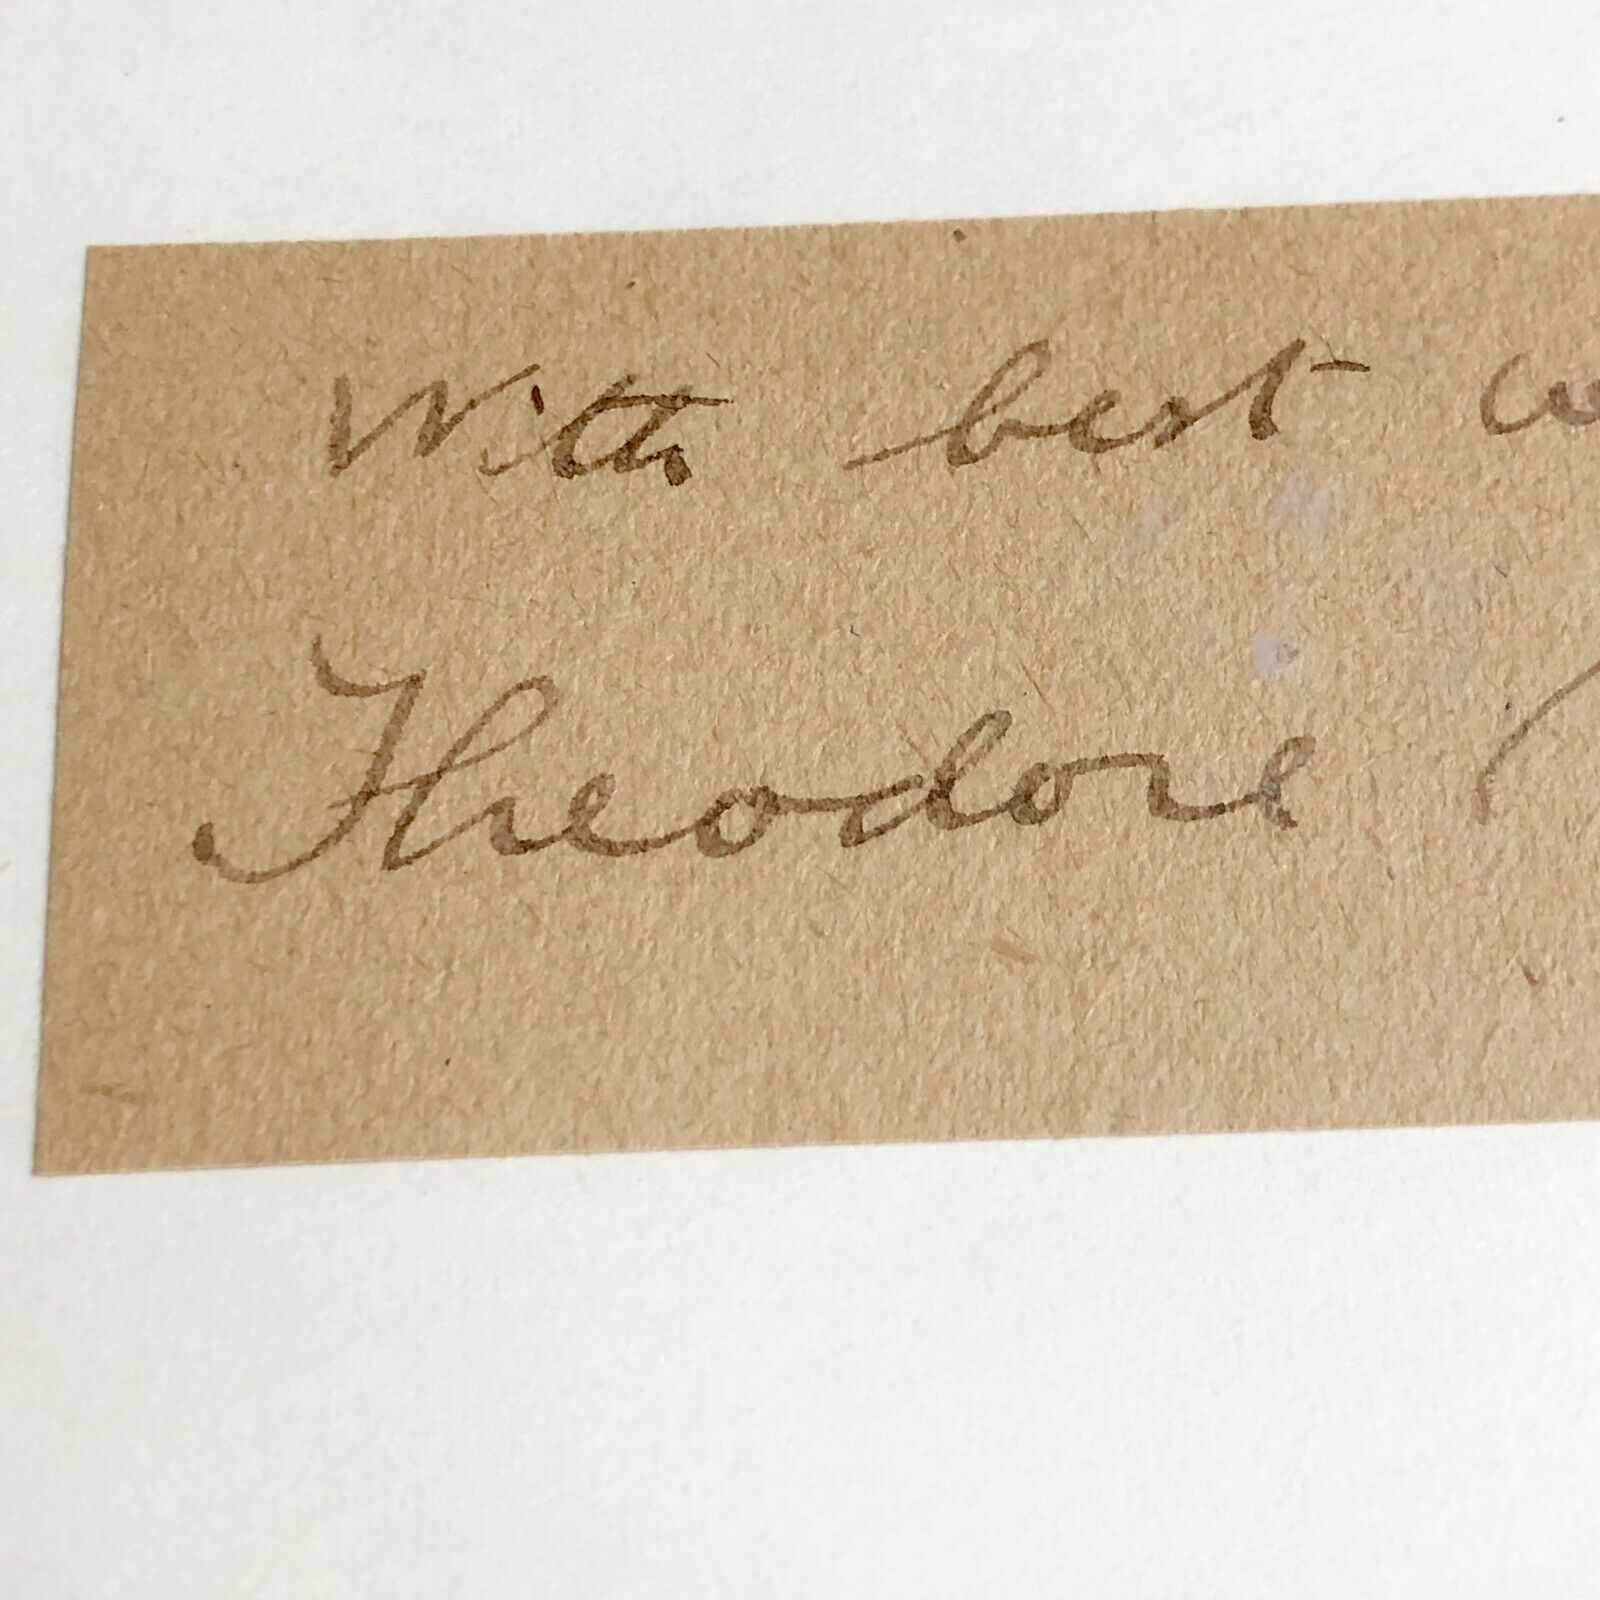 With best w
Theodore